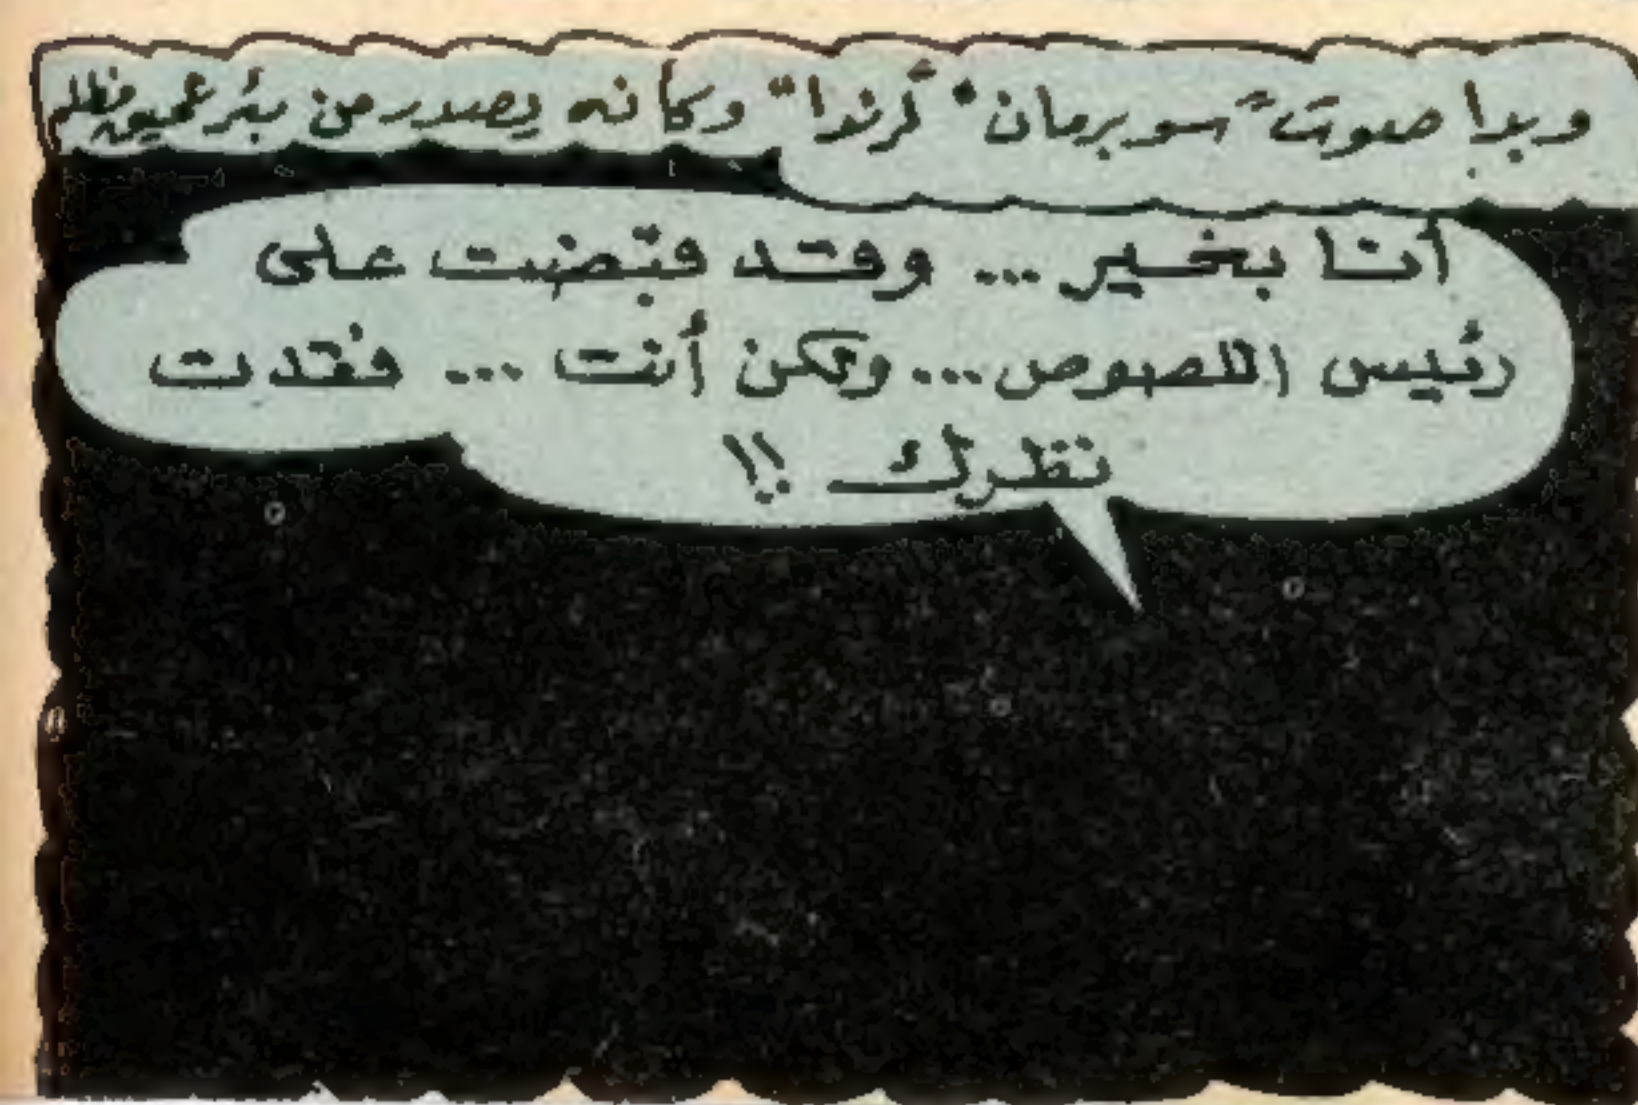 وبدا صوت "سوبرمان" "لرندا" وكأنه يصدر من بئر عميق مظلم
أنا بخير ... وقد قبضت على
رئيس اللصوص ... ولكن أنت ... فقدت
نظرك !!